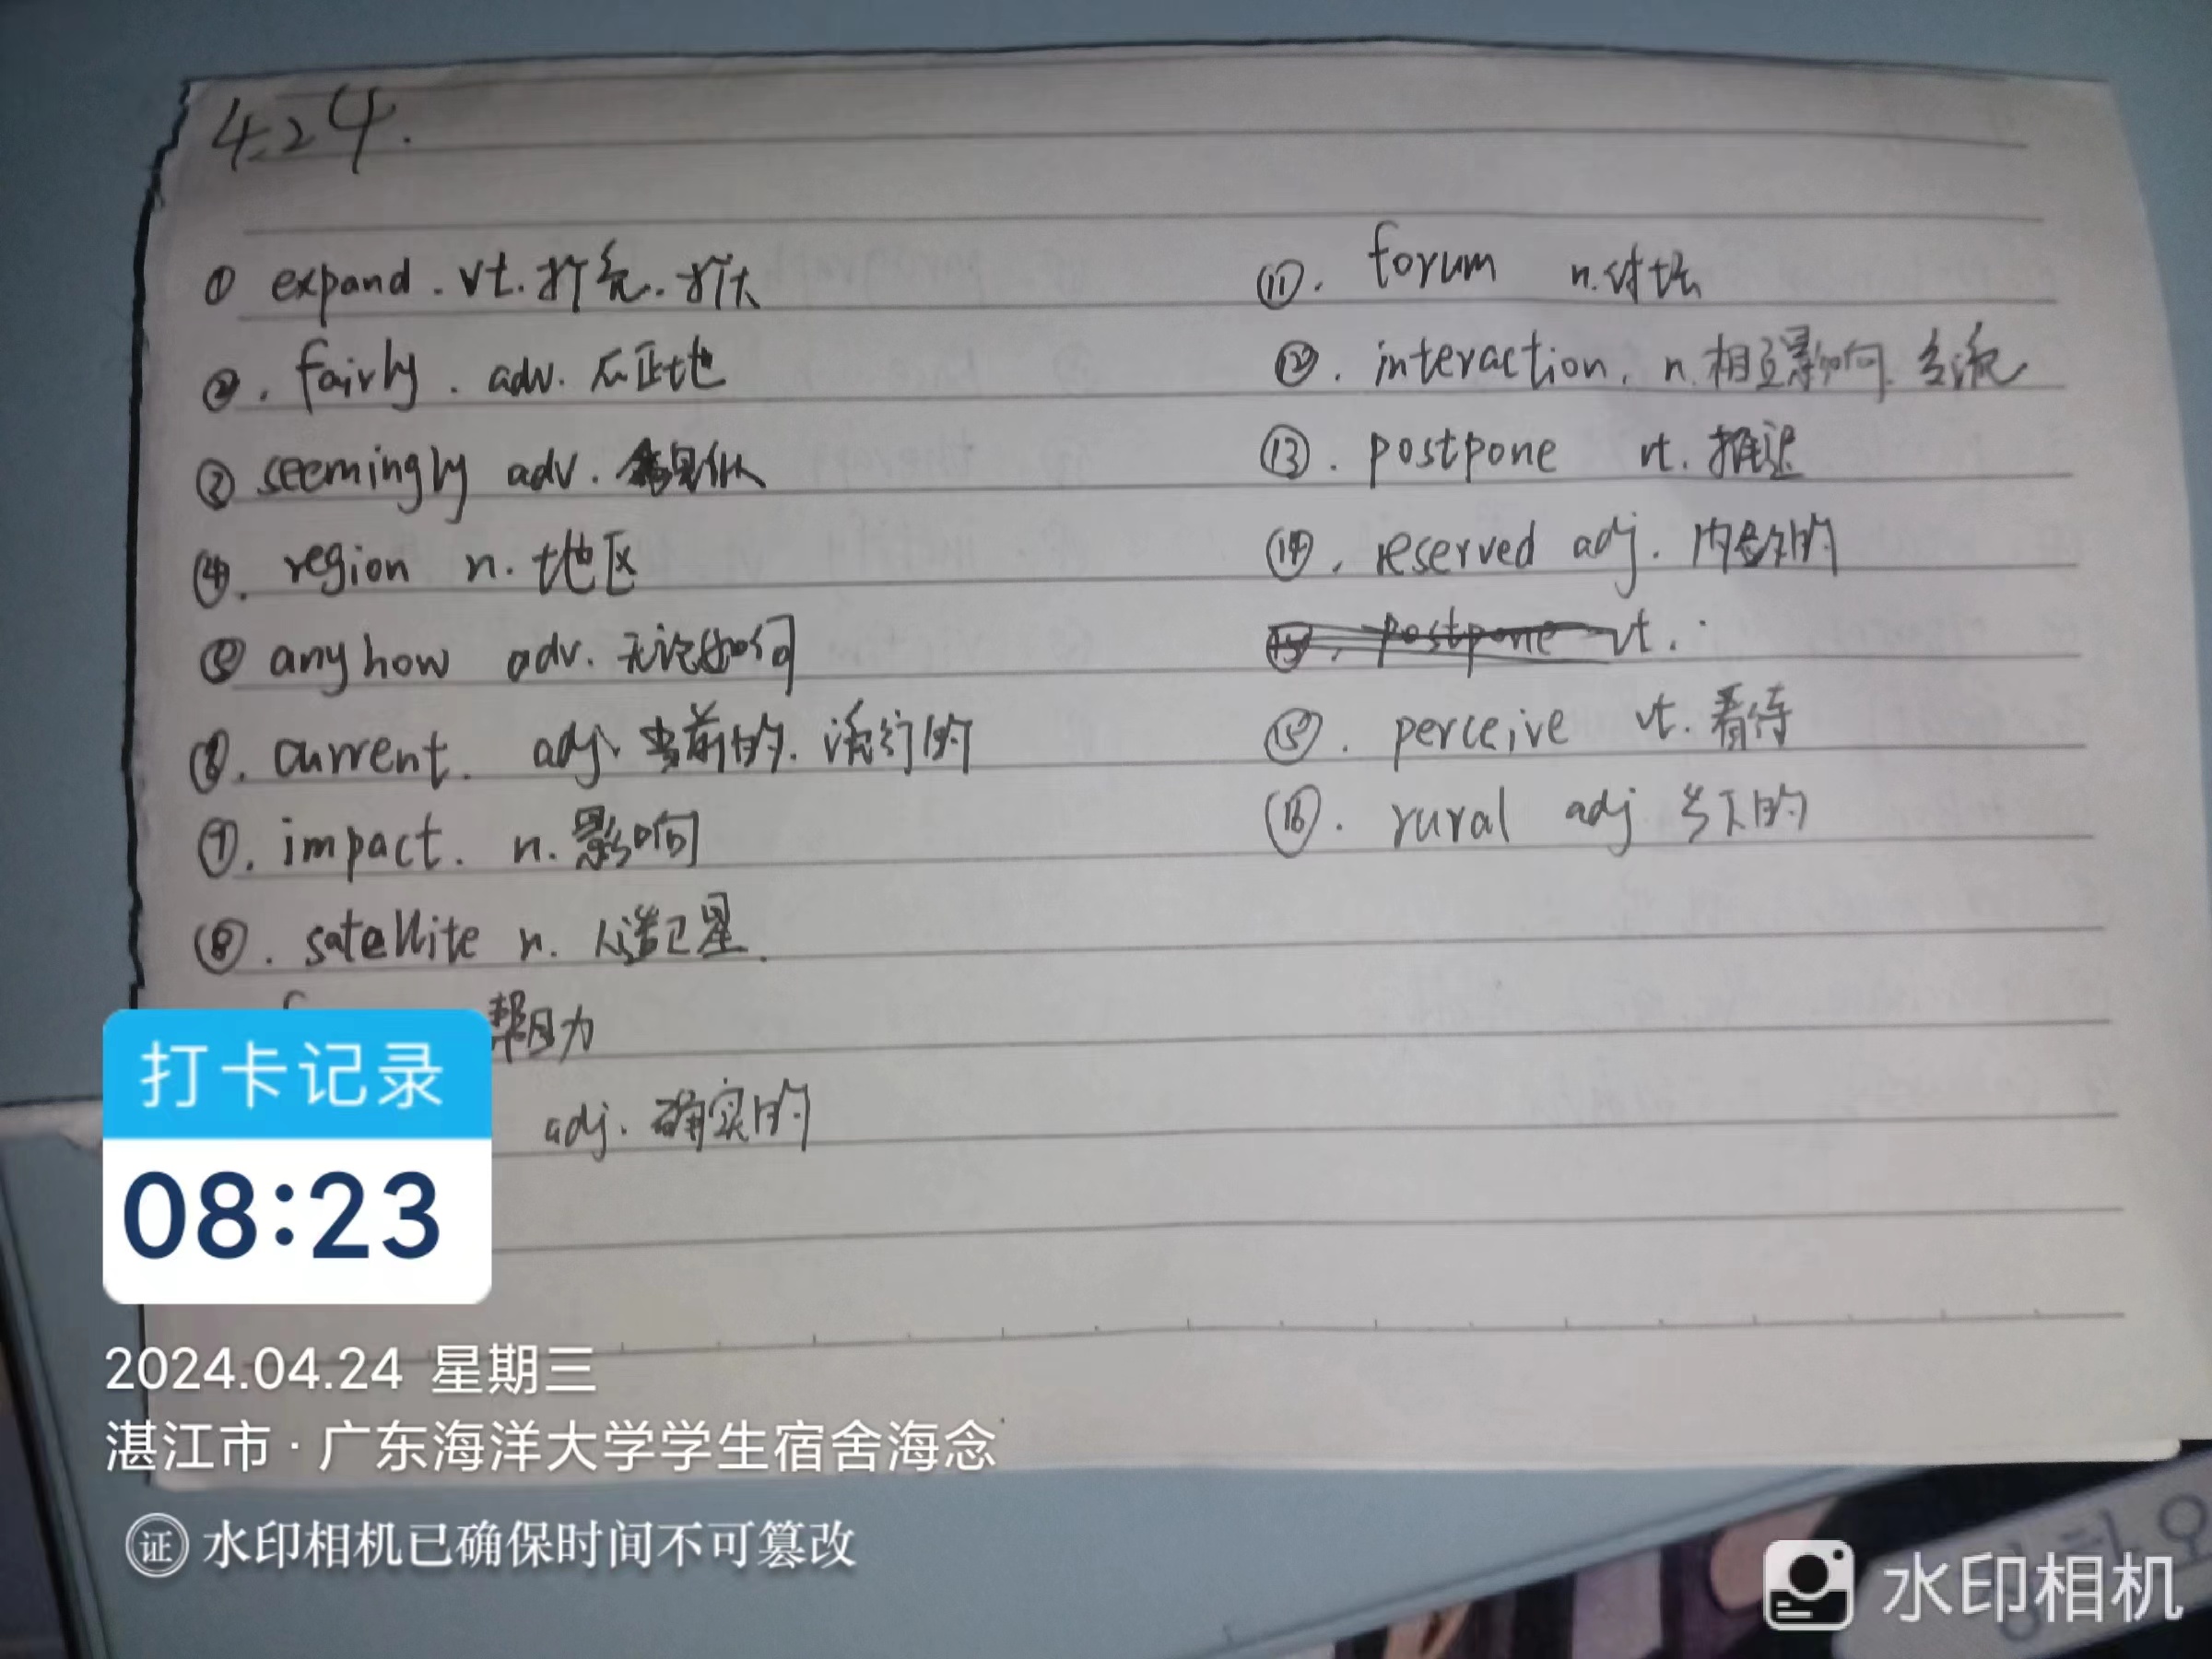 4.24.
① expand. vt. 扩充. 扩大
②. fairly. adv. 公正地
③ seemingly adv. 看似
④. region n. 地区
⑤ anyhow adv. 无论如何
⑥. current. adj. 当前的. 流行的
⑦. impact. n. 影响
⑧. satellite n. 人造卫星.
帮助
adj. 确实的
⑪. forum n. 讨坛
⑫. interaction. n. 相互影响. 交流
⑬. postpone vt. 推迟
⑭. reserved adj. 内敛的
⑮. postpone vt.
⑮. perceive vt. 看待
⑯. rural adj 乡下的
打卡记录
08:23
2024.04.24 星期三
湛江市·广东海洋大学学生宿舍海念
证 水印相机已确保时间不可篡改
水印相机